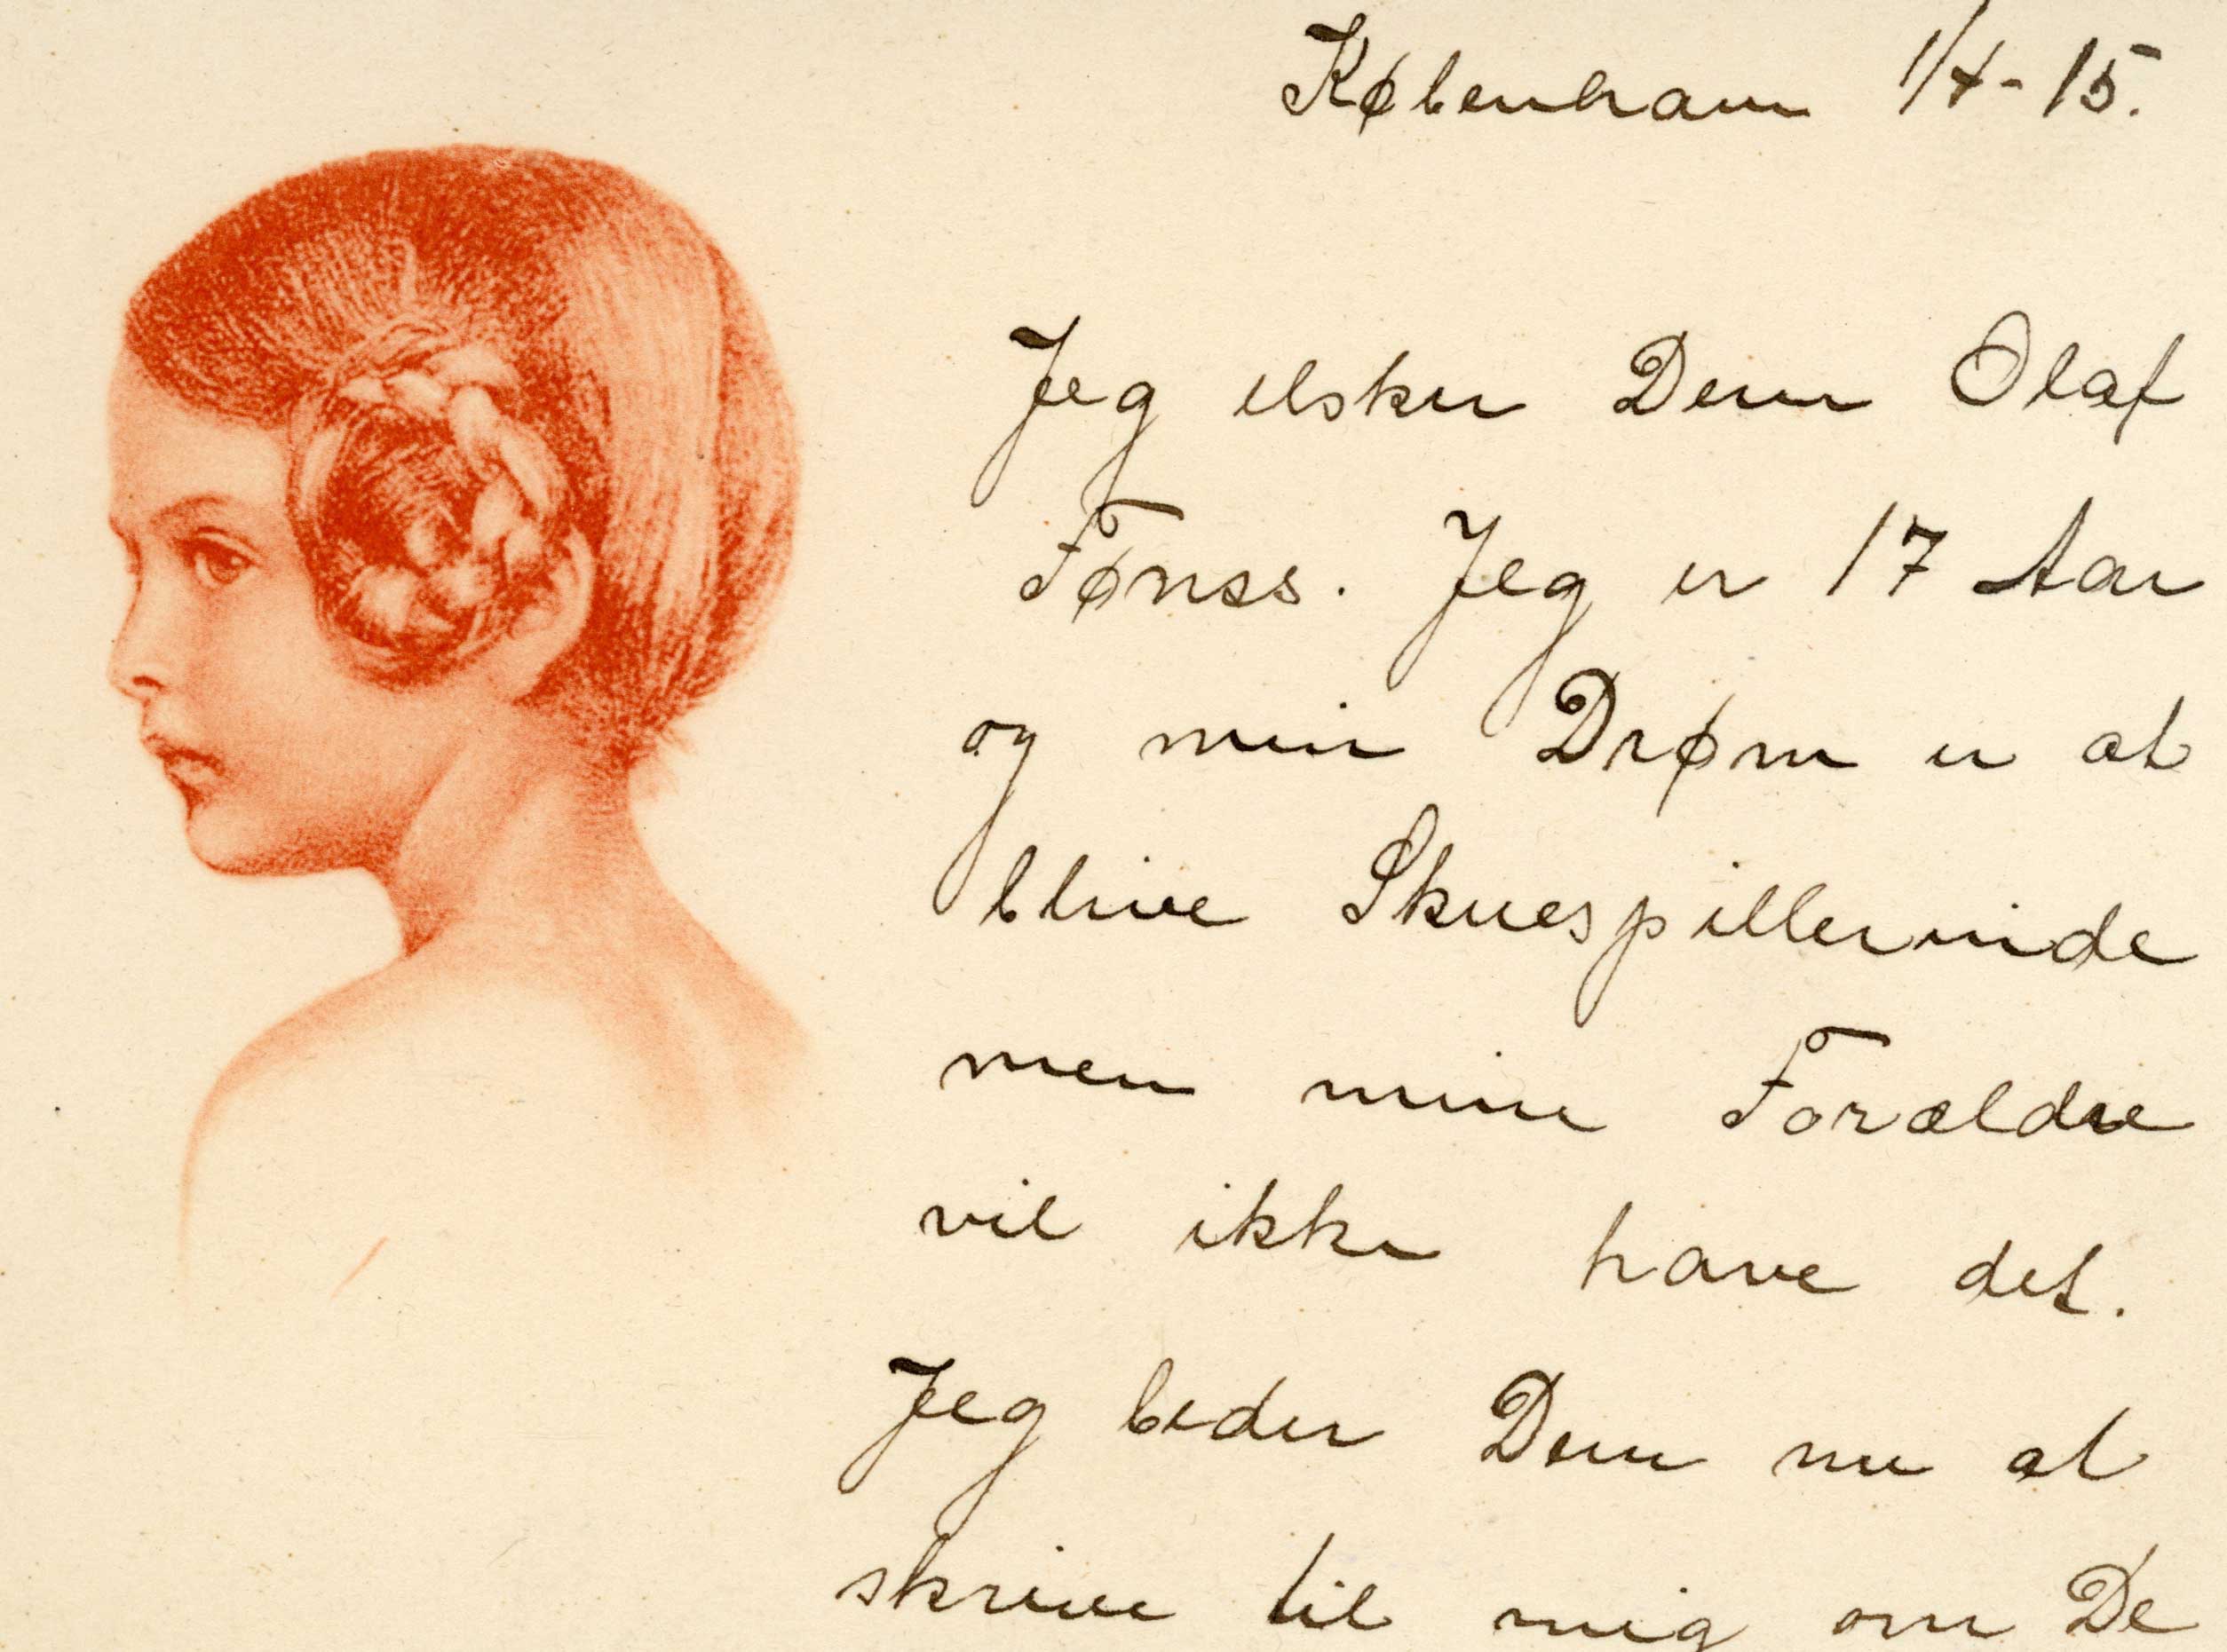 København 1/4-15.
Jeg elsker Dem Olaf
Fønss. Jeg er 17 Aar
og min Drøm er at
blive Skuespillerinde
men mine Forældre
vil ikke have det.
Jeg beder Dem nu at
skrive til mig om De